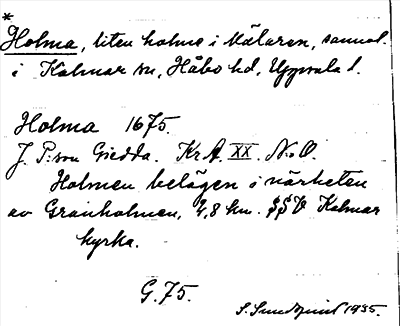 *
Holma, liten holme i Mälaren, samnat.
i Kalmar sn, Håbo hd, Uppsala l.
Holma 1675.
J. P:son Giedda. Kr A. XX. N:o 0.
Holmen belägen i närheten
av Granholmen, 4,8 km. SSV Kalmar
kyrka.
G. 75.
S. Sundqvist 1935.